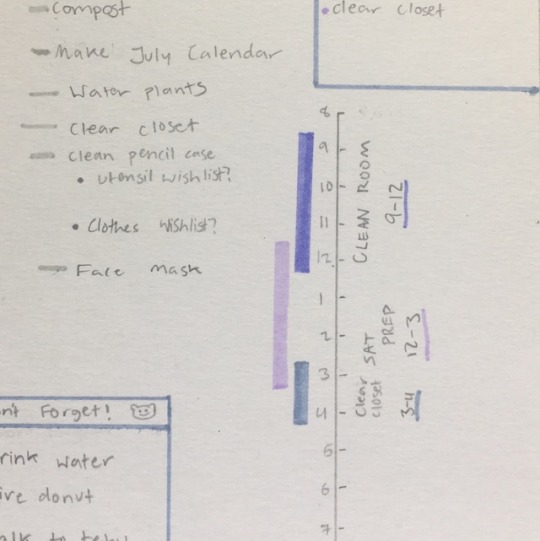 Compost
Make July Calendar
Water plants
Clear closet
Clean pencil case
• utensil wishlist?
• Clothes wishlist?
Face mask
n't Forget!
rink water
ive donut
•clear closet
8
9
10
11
12
1
2
3
4
5
6
7
CLEAN ROOM
9-12
SAT PREP
12-3
Clear
closet
3-4